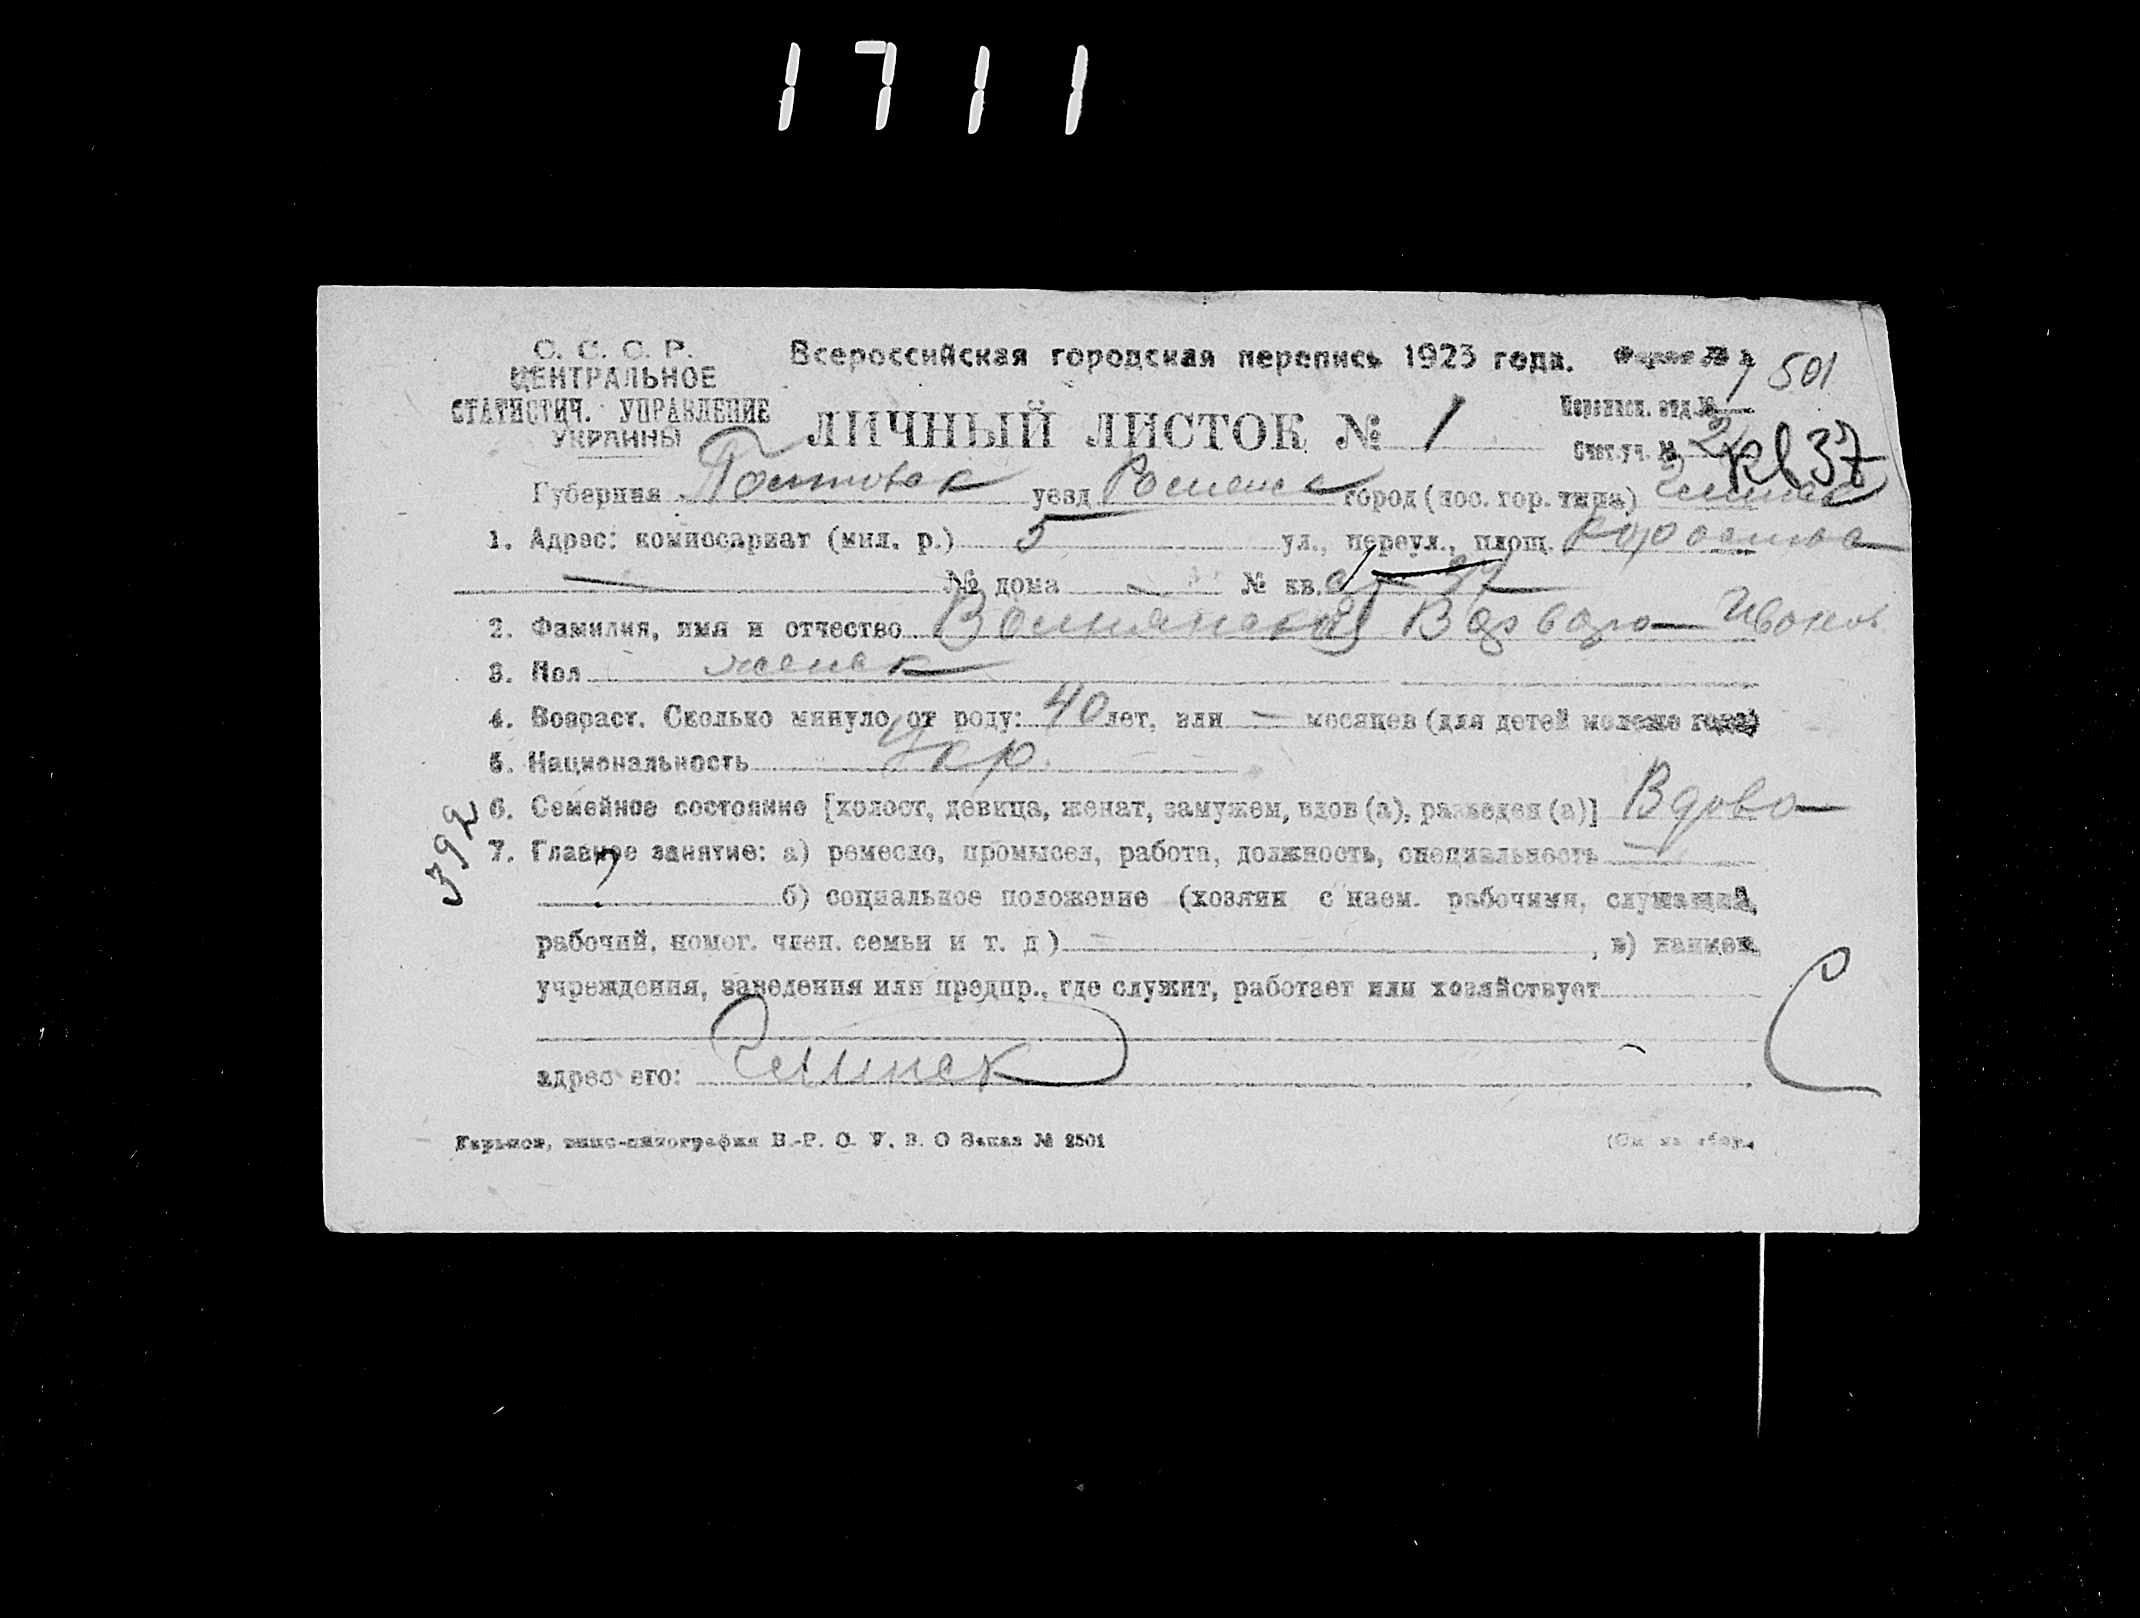 1711
С. С. С. Р.
ЦЕНТРАЛЬНОЕ
СТАТИСТИЧ. УПРАВЛЕНИЕ
УКРАИНЫ
Всероссийская городская перепись 1923 года. Форма №
501
ЛИЧНЫЙ ЛИСТОК № 1
Переписн. отд. №
Счет. уч. № 2
кв 37
Губерния Полтовск уезд Роменск город (пос. гор. типа)
1. Адрес: комиссариат (мил. р.) 5 ул., переул., площ.
№ дома — № кв. 37
2. Фамилия, имя и отчество Волнянская Варвара Иванов
3. Пол женск
4. Возраст. Сколько минуло от роду: 40 лет, или — месяцев (для детей моложе года)
5. Национальность Укр.
6. Семейное состояние [холост, девица, женат, замужем, вдов (а), разведен (а)] Вдова
392
7. Главное занятие: а) ремесло, промысел, работа, должность, специальность —
б) социальное положение (хозяин с наем. рабочими, служащий,
рабочий, помог. член. семьи и т. д) — , в) наимен.
учреждения, заведения или предпр., где служит, работает или хозяйствует
адрес его:
С
Харьков, типо-цинкография В.-Р. О. У. В. О Заказ № 2501
(См. на обор.